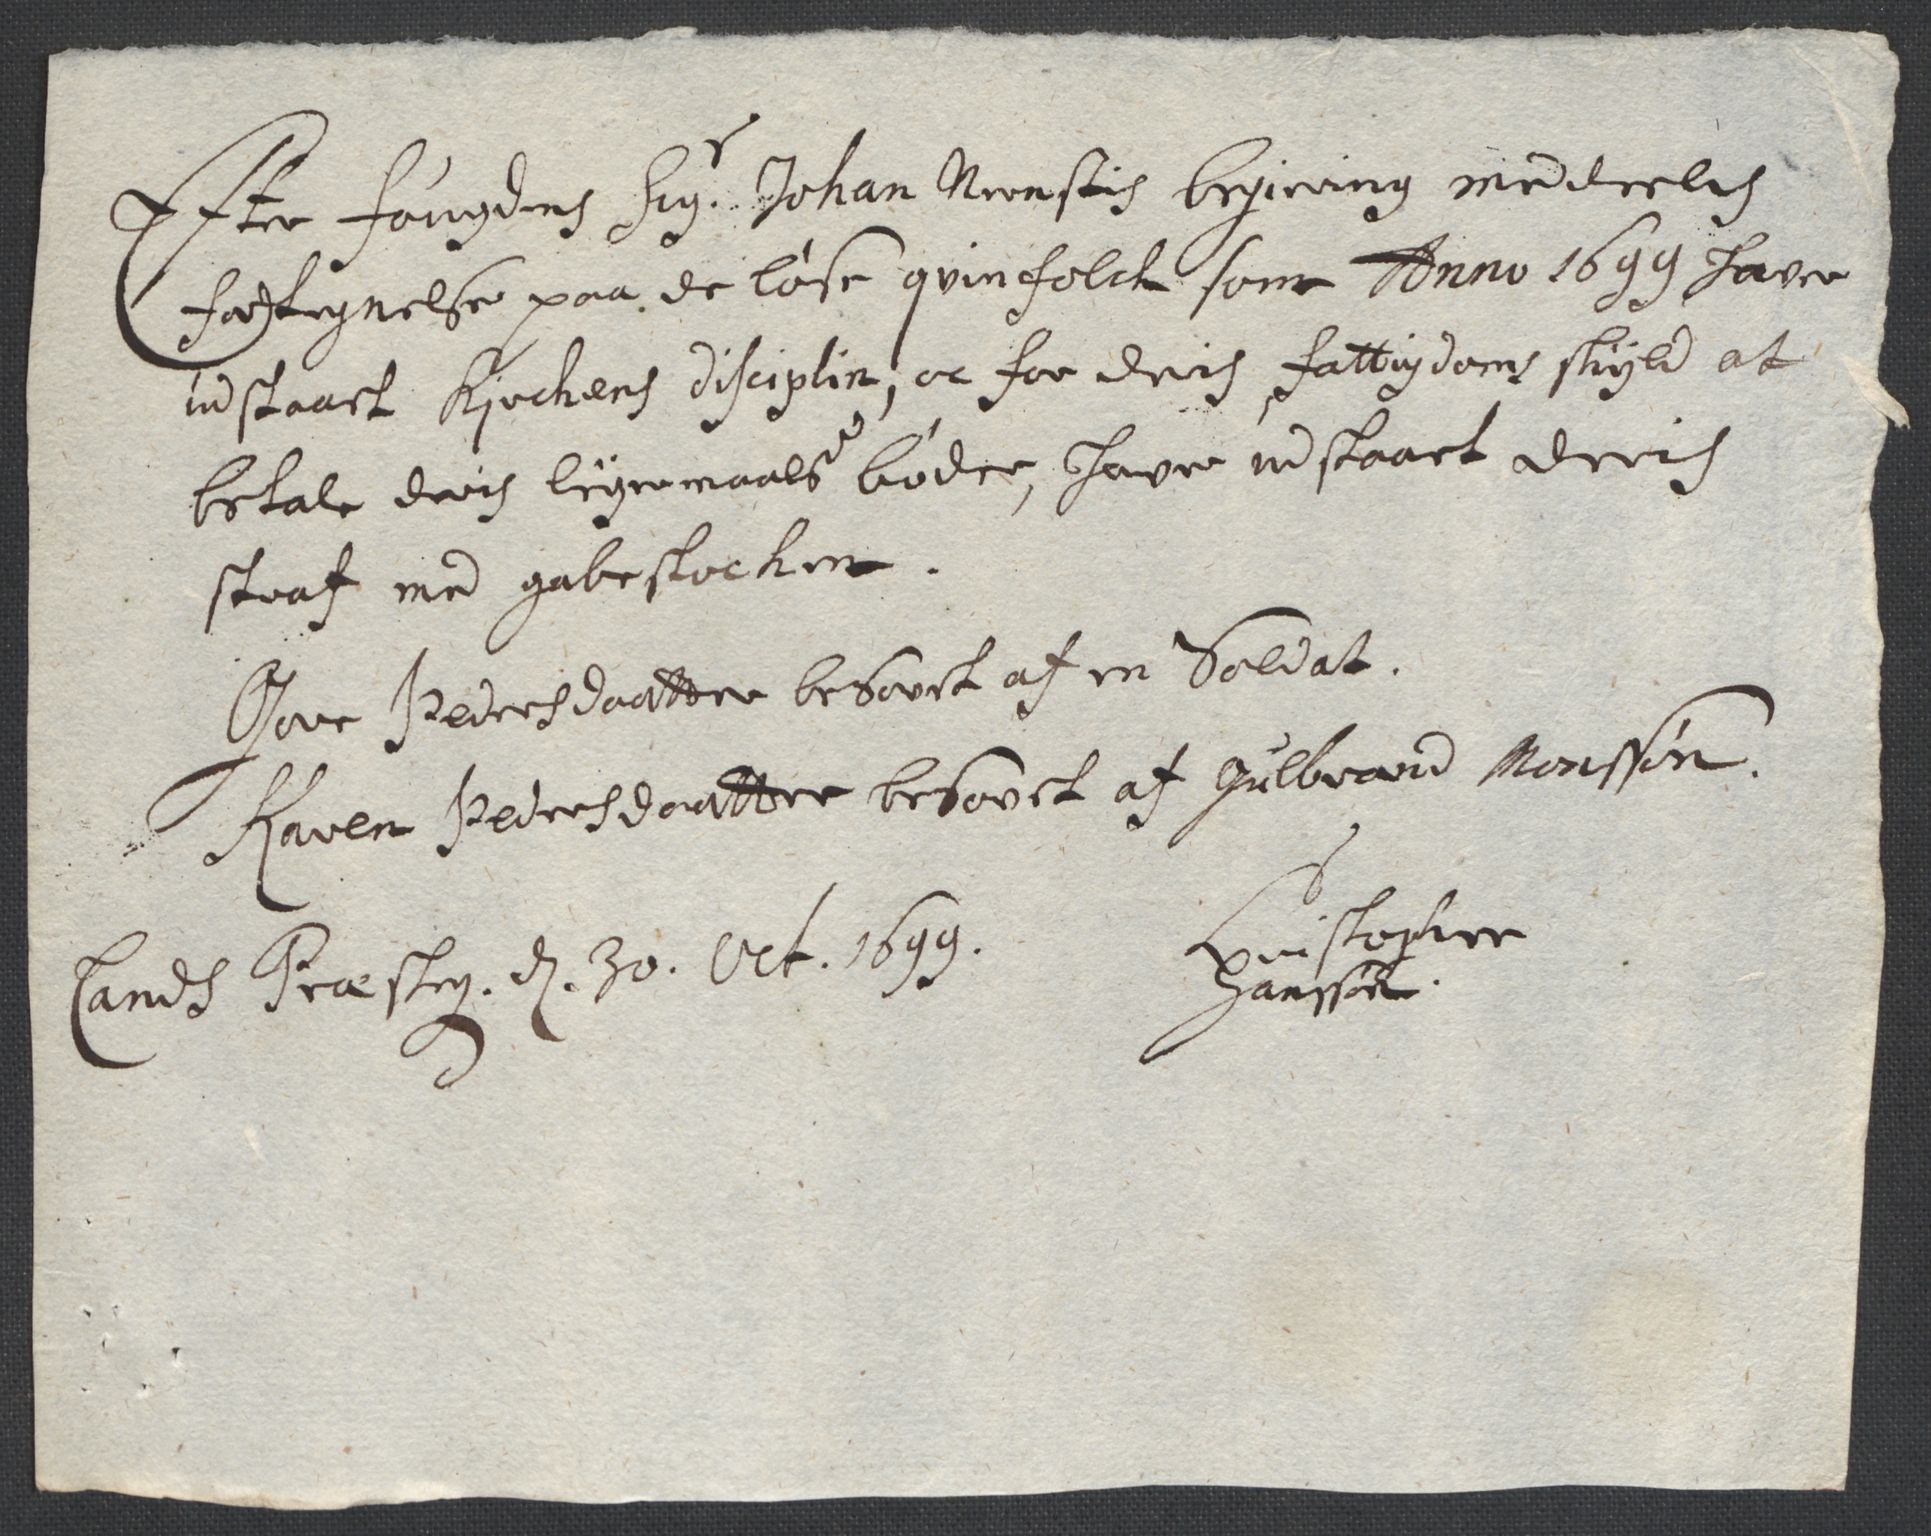 Efter fougdens Sigr. Johan Nenstis begiering meddeelis
fortegnelse paa de løse qvinfolck som Anno 1699 haver
udstaaet Kirchens disciplin, oc for deris fattigdoms skyld at
betale deris leyermaals bøder, haver udstaaet deris
straf med gabestochen.
Gore Pedersdaatter besovet af en Soldat.
Karen Pedersdaatter besovet af Gulbrand Monssøn.
Lands Præsteg. d. 30. Oct. 1699.
Christopher
Hanssøn.